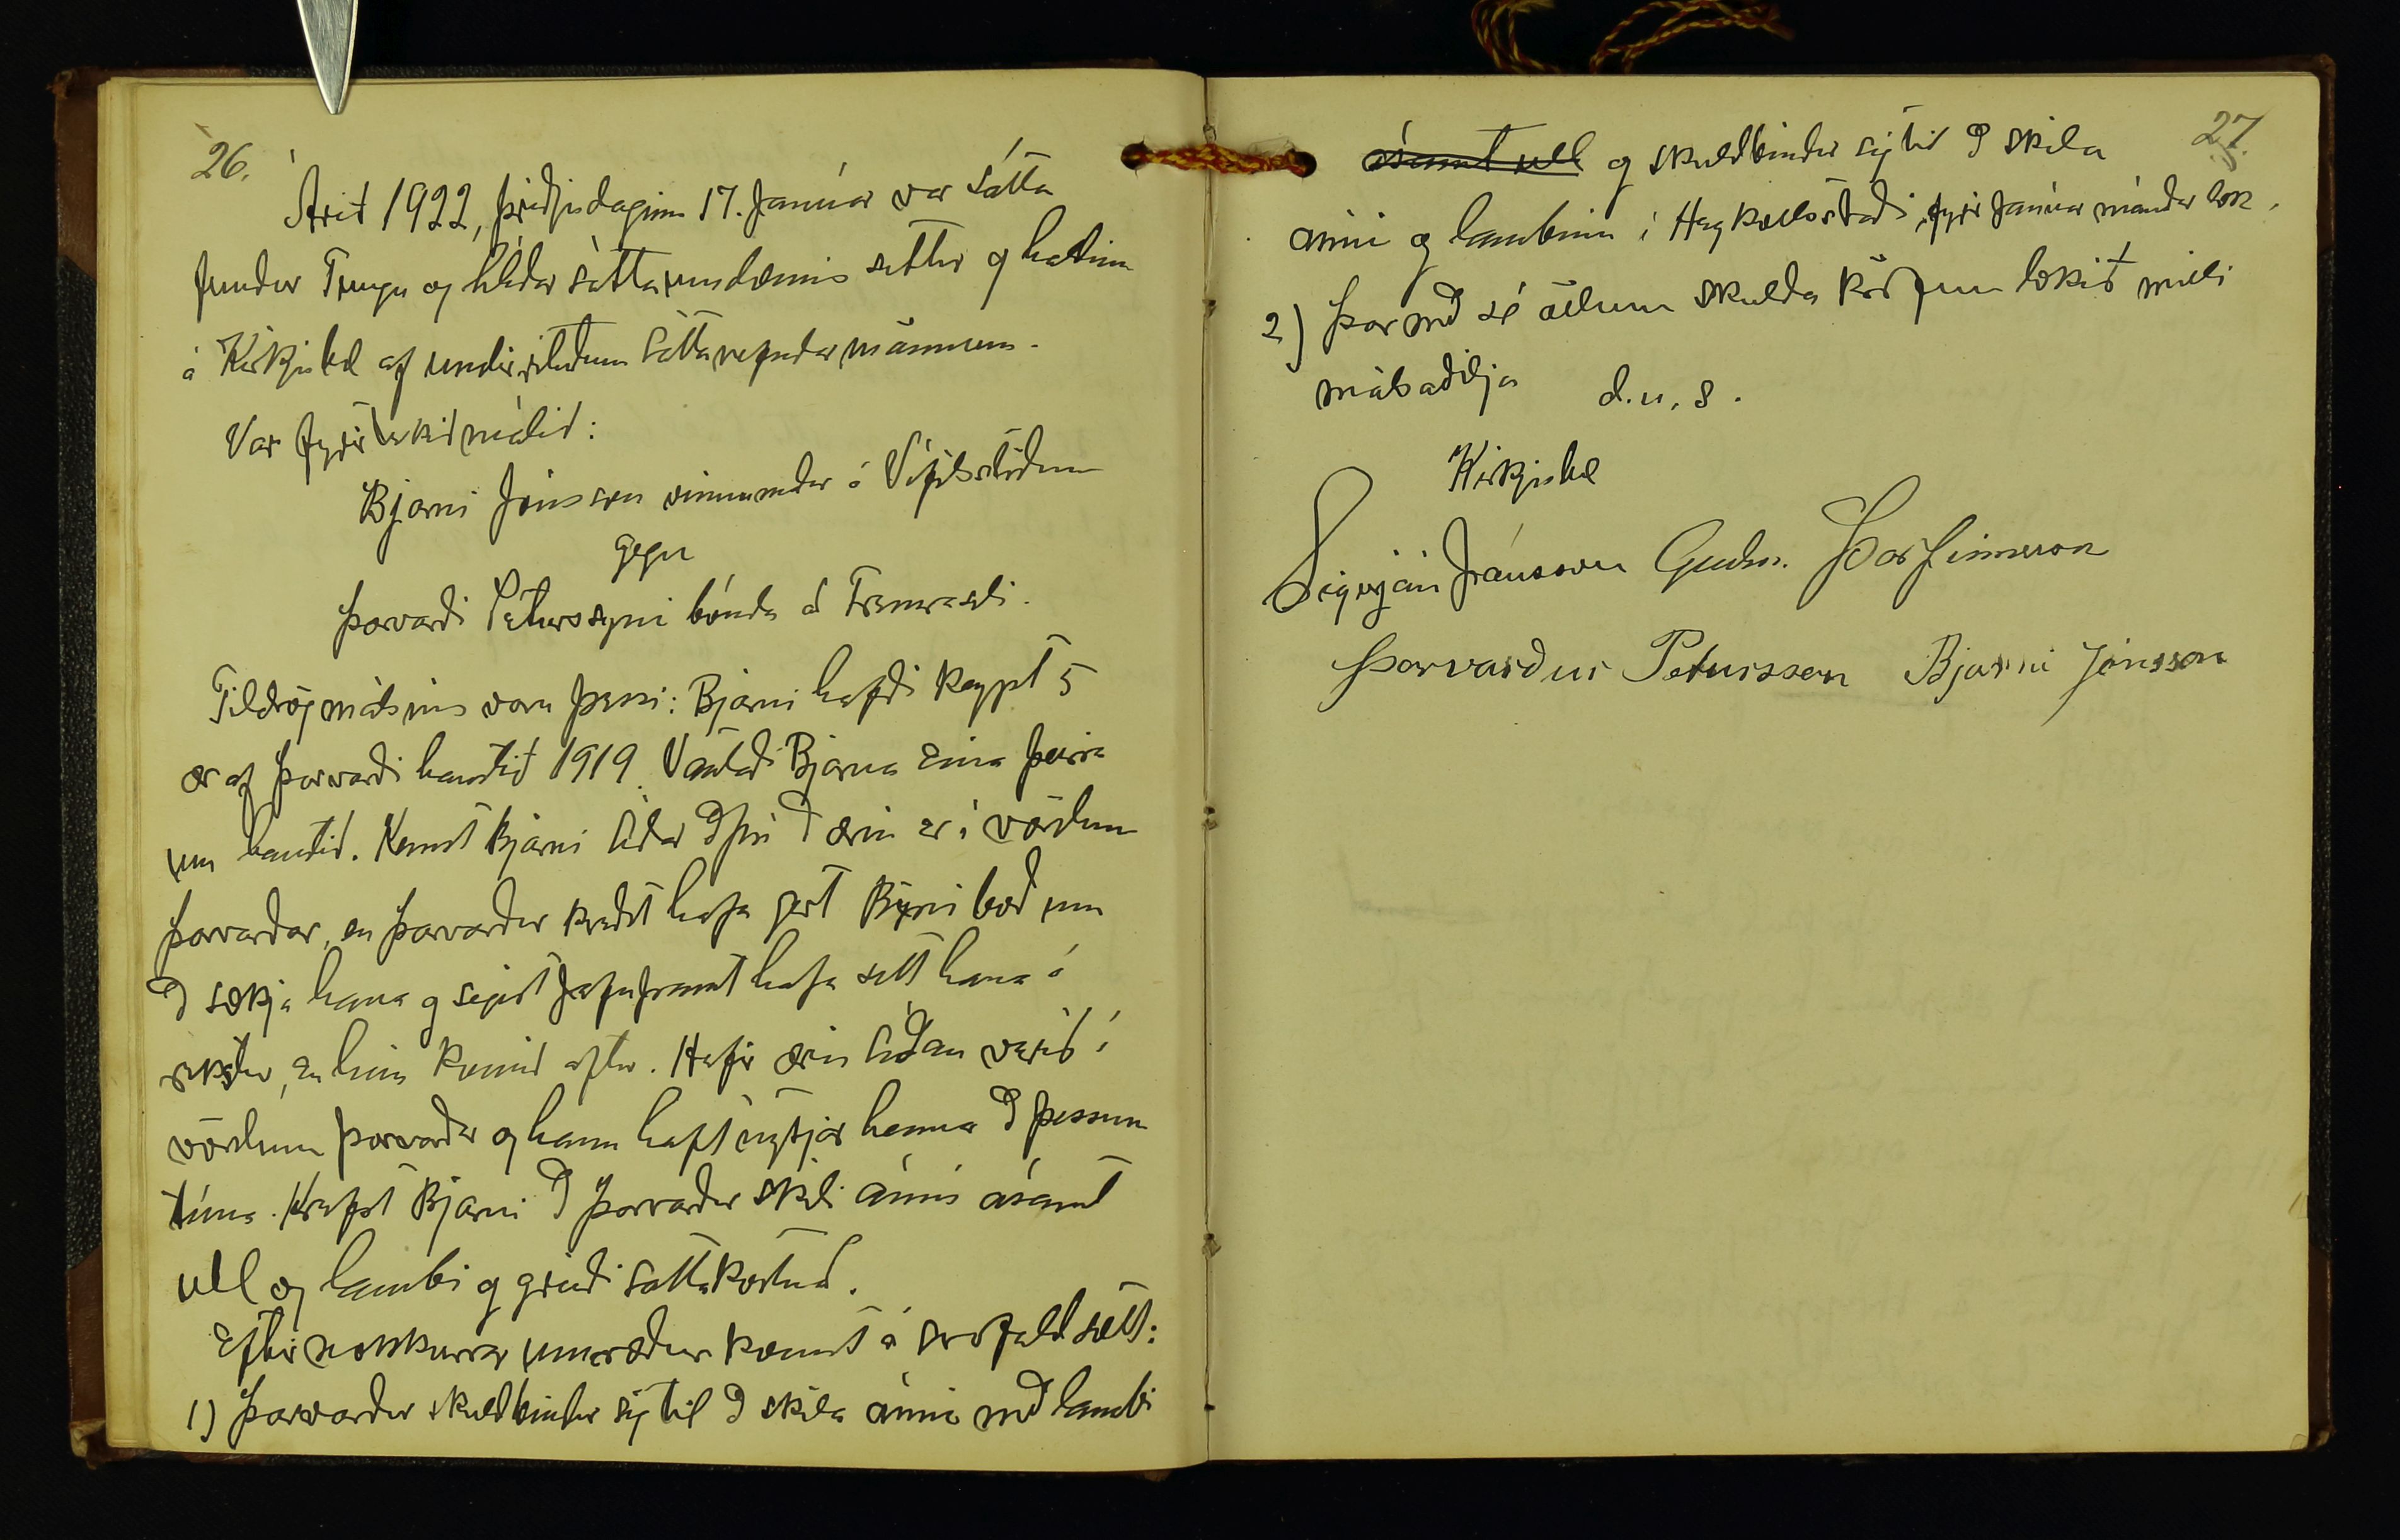 26.
Árið 1922, þriðjudaginn 17. Janúar var sátta
fundur Tungu og hlíðar sáttaumdæmis settur og haldinn
á Kirkjubæ af undirrituðum sáttanefndarmönnum.
Var fyrir tekið málið:
Bjarni Jónsson vinnumaður á Vífilsstöðum
gegn
Þorvarði Péturssyni bónda á
Tildrög málsins voru þessi: Bjarni hafði keypt 5
ær af Þorvarði haustið 1919. Vantaði Bjarna eina þeirra
um haustið. Kemst Bjarni síðar að því að ærin er í vörslum
Þorvarðar, en Þorvarður kveðst hafa gert Bjarni boð um
að sækja hana og segist jafnframt hafa sett hana í
rekstur, en hún komið aftur. Hefir ærin síðan verið í
vörslum Þorvarðar og hann haft nytjar hennar að þessum
tíma. Krefst Bjarni að Þorvarður skili ánni ásamt
ull og lambi og greiði sáttakostnað.
Eftir nokkurrar umræður komst á svofeld sætt:
1) Þorvarður skuldbindur sig til að skila ánni með lambi
27.
ásamt ull og skuldbindur sig til að skila
ánni og lambinu í Hag fyrir Janúar mánaðar lok.
2) Þar með sé öllum skulda kröfum lokið milli
málsaðilja d.u.s.
Kirkjubæ
Sigurjón Jónsson Guðm. Þorfinnsson
Þorvarður Petursson Bjarni Jónsson